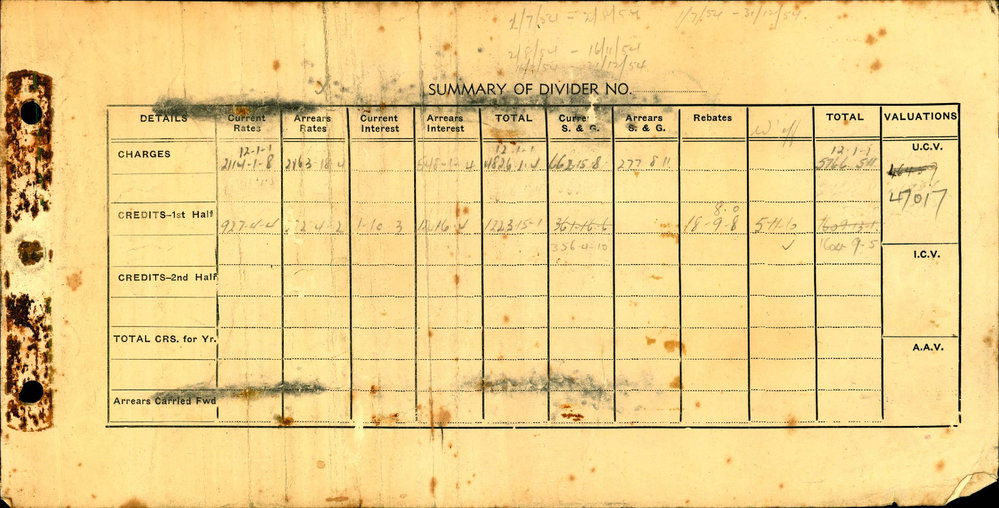 1/7/54 - 2/8/54 1/7/54 - 31/12/54
2/8/54 - 16/11/54
SUMMARY OF DIVIDER NO.
DETAILS Current Rates Arrears Rates Current Interest Arrears Interest TOTAL Current S. & G. Arrears S. & G. Rebates W/off TOTAL VALUATIONS
12-1-1 12-1-1 12-1-1 U.C.V.
CHARGES 2114-1-8 2163-18-4 548-1-4 4826-1-4 662-15-8 277-8-11 5766-5-11
47017
8.0
CREDITS-1st Half 927-4-4 1-10-3 1223-15-1 361-16-6 18-9-8 5-11-10 1609-13-1
356-4-10 1604-9-5
I.C.V.
CREDITS-2nd Half
TOTAL CRS. for Yr.
A.A.V.
Arrears Carried Fwd